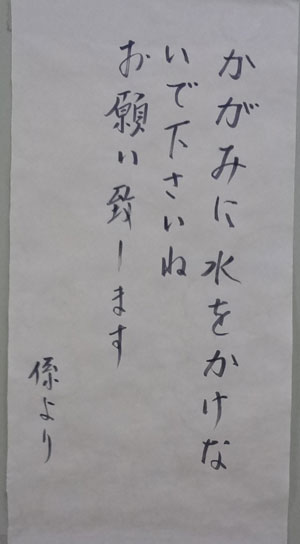 かがみに水をかけな
いで下さいね
お願い致します
係より